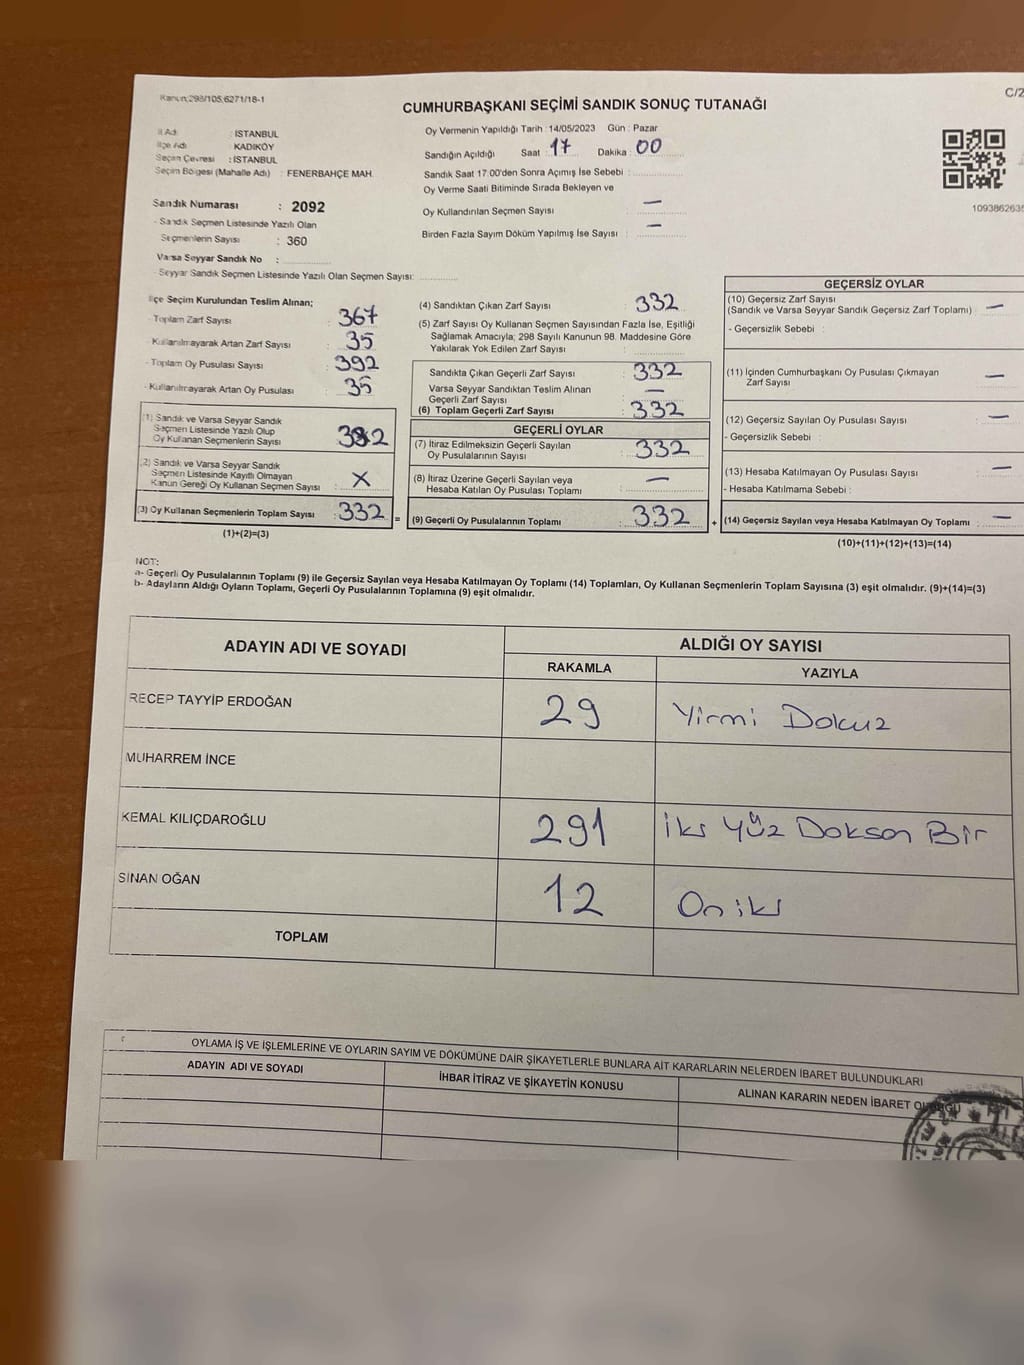 Kanun;298/105;6271/18-1
C/2
CUMHURBAŞKANI SEÇİMİ SANDIK SONUÇ TUTANAĞI
İl Adı : İSTANBUL
İlçe Adı : KADIKÖY
Seçim Çevresi : İSTANBUL
Seçim Bölgesi (Mahalle Adı) : FENERBAHÇE MAH.
Sandık Numarası : 2092
- Sandık Seçmen Listesinde Yazılı Olan
Seçmenlerin Sayısı : 360
Varsa Seyyar Sandık No :
- Seyyar Sandık Seçmen Listesinde Yazılı Olan Seçmen Sayısı:
Oy Vermenin Yapıldığı Tarih : 14/05/2023 Gün : Pazar
Sandığın Açıldığı Saat : 17 Dakika : 00
Sandık Saat 17:00'den Sonra Açımış İse Sebebi :
Oy Verme Saati Bitiminde Sırada Bekleyen ve
Oy Kullandırılan Seçmen Sayısı : —
Birden Fazla Sayım Döküm Yapılmış İse Sayısı : —
İlçe Seçim Kurulundan Teslim Alınan;
- Toplam Zarf Sayısı : 367
- Kullanılmayarak Artan Zarf Sayısı : 35
- Toplam Oy Pusulası Sayısı : 392
- Kullanılmayarak Artan Oy Pusulası : 35
(1) Sandık ve Varsa Seyyar Sandık
Seçmen Listesinde Yazılı Olup
Oy Kullanan Seçmenlerin Sayısı : 332
(2) Sandık ve Varsa Seyyar Sandık
Seçmen Listesinde Kayıtlı Olmayan
Kanun Gereği Oy Kullanan Seçmen Sayısı : X
(3) Oy Kullanan Seçmenlerin Toplam Sayısı : 332 =
(1)+(2)=(3)
(4) Sandıktan Çıkan Zarf Sayısı : 332
(5) Zarf Sayısı Oy Kullanan Seçmen Sayısından Fazla İse, Eşitliği
Sağlamak Amacıyla; 298 Sayılı Kanunun 98. Maddesine Göre
Yakılarak Yok Edilen Zarf Sayısı :
Sandıkta Çıkan Geçerli Zarf Sayısı : 332
Varsa Seyyar Sandıktan Teslim Alınan
Geçerli Zarf Sayısı : —
(6) Toplam Geçerli Zarf Sayısı : 332
GEÇERLİ OYLAR
(7) İtiraz Edilmeksizin Geçerli Sayılan
Oy Pusulalarının Sayısı : 332
(8) İtiraz Üzerine Geçerli Sayılan veya
Hesaba Katılan Oy Pusulası Toplamı : —
(9) Geçerli Oy Pusulalarının Toplamı : 332 +
1093862635
GEÇERSİZ OYLAR
(10) Geçersiz Zarf Sayısı
(Sandık ve Varsa Seyyar Sandık Geçersiz Zarf Toplamı) : —
- Geçersizlik Sebebi :
(11) İçinden Cumhurbaşkanı Oy Pusulası Çıkmayan
Zarf Sayısı : —
(12) Geçersiz Sayılan Oy Pusulası Sayısı : —
- Geçersizlik Sebebi :
(13) Hesaba Katılmayan Oy Pusulası Sayısı : —
- Hesaba Katılmama Sebebi :
(14) Geçersiz Sayılan veya Hesaba Katılmayan Oy Toplamı : —
(10)+(11)+(12)+(13)=(14)
NOT:
a- Geçerli Oy Pusulalarının Toplamı (9) ile Geçersiz Sayılan veya Hesaba Katılmayan Oy Toplamı (14) Toplamları, Oy Kullanan Seçmenlerin Toplam Sayısına (3) eşit olmalıdır. (9)+(14)=(3)
b- Adayların Aldığı Oyların Toplamı, Geçerli Oy Pusulalarının Toplamına (9) eşit olmalıdır.
ADAYIN ADI VE SOYADI
ALDIĞI OY SAYISI
RAKAMLA YAZIYLA
RECEP TAYYİP ERDOĞAN 29 Yirmi Dokuz
MUHARREM İNCE
KEMAL KILIÇDAROĞLU 291 İki Yüz Doksan Bir
SİNAN OĞAN 12 On iki
TOPLAM
OYLAMA İŞ VE İŞLEMLERİNE VE OYLARIN SAYIM VE DÖKÜMÜNE DAİR ŞİKAYETLERLE BUNLARA AİT KARARLARIN NELERDEN İBARET BULUNDUKLARI
ADAYIN ADI VE SOYADI İHBAR İTİRAZ VE ŞİKAYETİN KONUSU ALINAN KARARIN NEDEN İBARET OLDUĞU